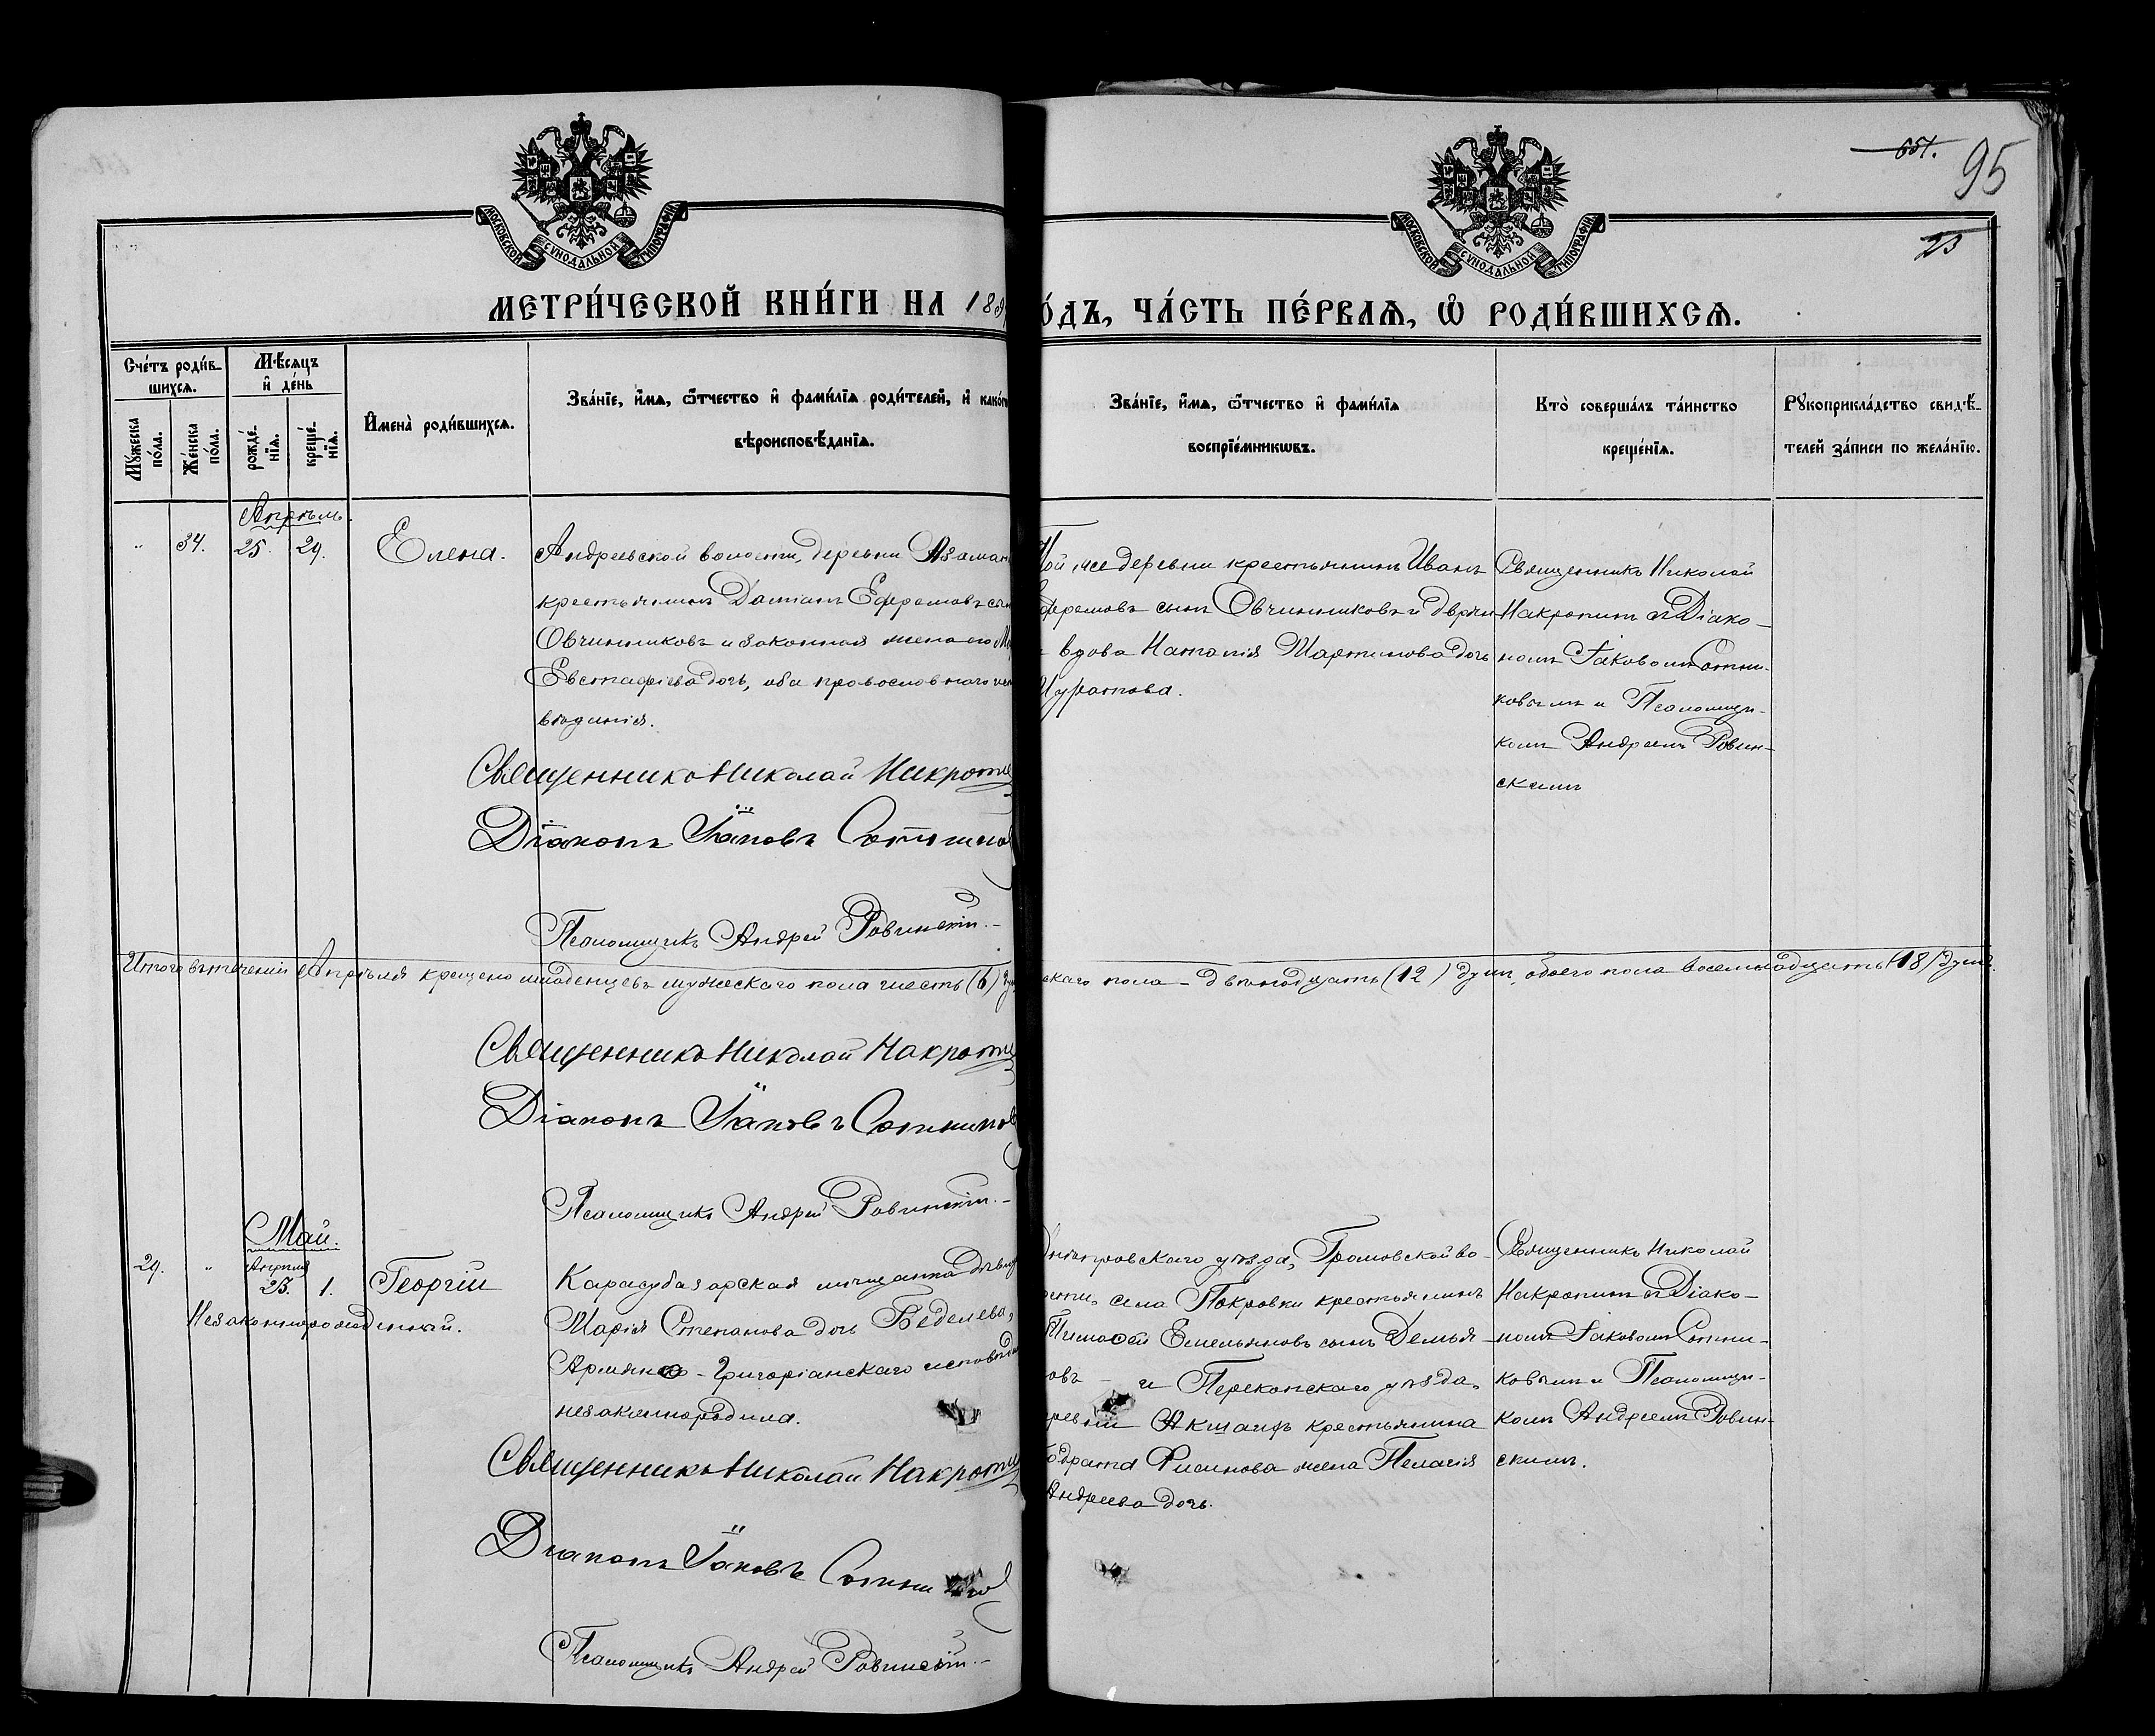 651. 95
МОСКОВСКОЙ СѴНОДАЛЬНОЙ ТИПОГРАФІИ
МОСКОВСКОЙ СѴНОДАЛЬНОЙ ТИПОГРАФІИ
23
МЕТРИ́ЧЕСКОЙ КНИ́ГИ НА 189
О́ДЪ, ЧА́СТЬ ПЕ́РВАѦ, Ѡ҆ РОДИ́ВШИХСѦ.
Сче́тъ роди́в-
шихсѧ.
Мѣ́сѧцъ
и҆ де́нь
Му́жеска
по́ла.
Же́нска
по́ла.
рожде́-
нїѧ.
креще́-
нїѧ.
И҆мена̀ роди́вшихсѧ.
Зва́нїе, и҆́мѧ, ѻ҆́тчество и҆ фами́лїѧ роди́телей, и҆ како́гѡ
вѣроисповѣ́данїѧ.
Зва́нїе, и҆́мѧ, ѻ҆́тчество и҆ фами́лїѧ
воспрїе́мникѡвъ.
Кто̀ соверша́лъ та́инство
креще́нїѧ.
Рꙋкоприкла́дство свидѣ́-
телей за́писи по жела́нїю.
Апрѣль.
" 34. 25. 29. Елена.
Андреевской волости, деревни Азаман
крестьянинъ Даміанъ Ефремовъ сы
Овчинниковъ и законная жена его М
Евстафіева дочь, оба православнаго
вѣданія.
Той же деревни крестьянинъ Иванъ
Ефремовъ сынъ Овчинниковъ и дворян
вдова Наталія Мартинова дочь
Муратова.
Священникъ Николай
Накропинъ съ Діако-
номъ Іаковомъ Сотни-
ковымъ и Псаломщи-
комъ Андреемъ Ровин-
скимъ
Священникъ Николай Накропи
Діаконъ Іаковъ Сотников
Псаломщикъ Андрей Ровинскій.-
Итого въ теченіи Апрѣля крещено младенцевъ мужескаго пола шесть (6) ду
скаго пола - двѣнадцать (12) душъ, обоего пола восемнадцать (18) душъ.
Священникъ Николай Накропи
Діаконъ Іаковъ Сотников
Псаломщикъ Андрей Ровинскій.-
Май.
29. " Апрѣля 23. 1. Георгій
Незаконнорожденный.
Карасубазарская мѣщанка дѣвиц
Марія Степанова дочь Беделева,
Армяно-Григоріанскаго исповѣдан
незаконнородила.
Днѣпровскаго уѣзда, Громовской во-
сти, села Покровки крестьянинъ
Тимофей Емельяновъ сынъ Демья-
овъ - и Перекопскаго уѣзда,
ревни Акшаифъ крестьянина
Фисинова жена Пелагія
Андреева дочь.
Священникъ Николай
Накропинъ съ Діако-
номъ Іаковомъ Сотни-
ковымъ и Псаломщи-
комъ Андреемъ Ровин-
скимъ.
Священникъ Николай Накропи
Діаконъ Іаковъ Сотников
Псаломщикъ Андрей Ровинскій.-